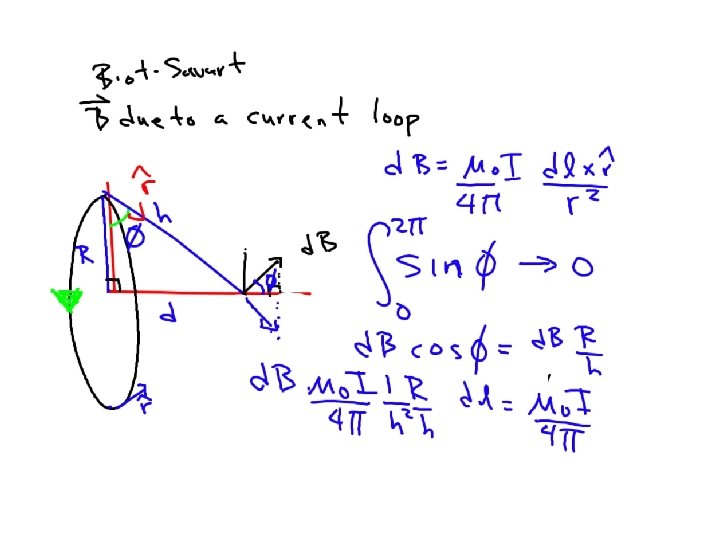 Biot-Savart
B⃗ due to a current loop
dB = μ₀I/4π dl × r̂/r²
r̂
h
R
Ø
dB
ϕ
d
r̂
∫₀^2π sin ϕ → 0
dB cos ϕ = dB R/h
dB μ₀I/4π 1/h² R/h dl = μ₀I/4π